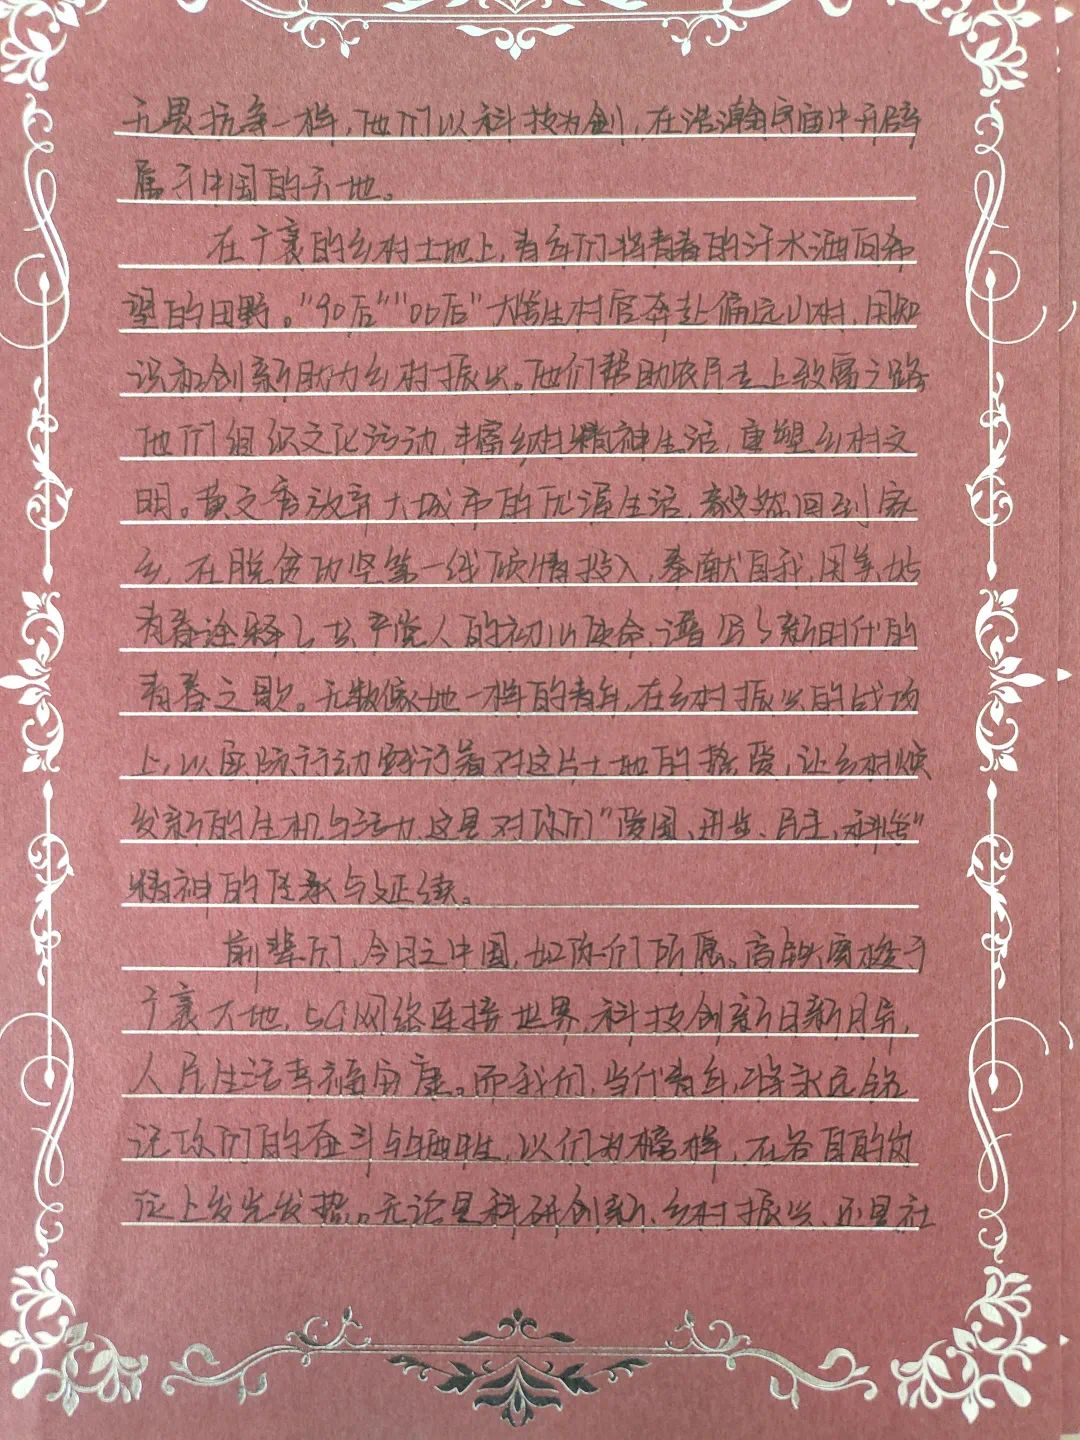 无畏抗争一样，他们以科技为剑，在浩瀚宇宙中开辟
属于中国的天地。
在广袤的乡村土地上，青年们将青春的汗水洒向希
望的田野。"90后""00后"大学生村官奔赴偏远山村，用知
识和创新助力乡村振兴。他们帮助农民走上致富之路
他们组织文化活动，丰富乡村精神生活，重塑乡村文
明。黄文秀放弃大城市的优渥生活，毅然回到家
乡，在脱贫攻坚第一线倾情投入，奉献自我，用美好
青春诠释了共产党人的初心使命，谱写了新时代的
青春之歌。无数像她一样的青年，在乡村振兴的战场
上，以实际行动践行着对这片土地的热爱，让乡村焕
发新的生机与活力，这是对你们"爱国、进步、民主、科学"
精神的传承与延续。
前辈们，今日之中国，如你们所愿。高铁穿梭于
广袤大地，5G网络连接世界，科技创新日新月异，
人民生活幸福安康。而我们，当代青年，将永远铭
记你们的奋斗与牺牲，以们为榜样，在各自的岗
位上发光发热。无论是科研创新、乡村振兴、还是社